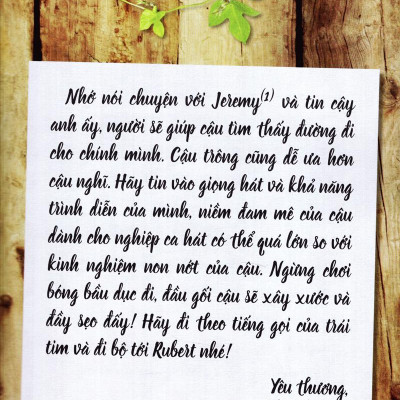 Nhớ nói chuyện với Jeremy(1) và tin cậy
anh ấy, người sẽ giúp cậu tìm thấy đường đi
cho chính mình. Cậu trông cũng dễ ưa hơn
cậu nghĩ. Hãy tin vào giọng hát và khả năng
trình diễn của mình, niềm đam mê của cậu
dành cho nghiệp ca hát có thể quá lớn so với
kinh nghiệm non nớt của cậu. Ngừng chơi
bóng bầu dục đi, đầu gối cậu sẽ xây xước và
đầy sẹo đấy! Hãy đi theo tiếng gọi của trái
tim và đi bộ tới Rubert nhé!
Yêu thương,